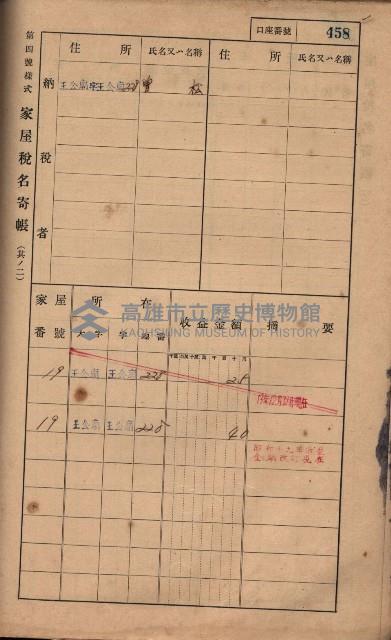 口座番號 458
第四號樣式 家屋稅名寄帳 (其ノ二)
納稅者
住所 氏名又ハ名稱 住所 氏名又ハ名稱
王公廟字王公廟228 曾 松
家屋番號 所在 收益金額 摘要
大字 字 地番
19 王公廟 王公廟 228 28
19 王公廟 王公廟 228 40
高雄市立歷史博物館
KAOHSIUNG MUSEUM OF HISTORY